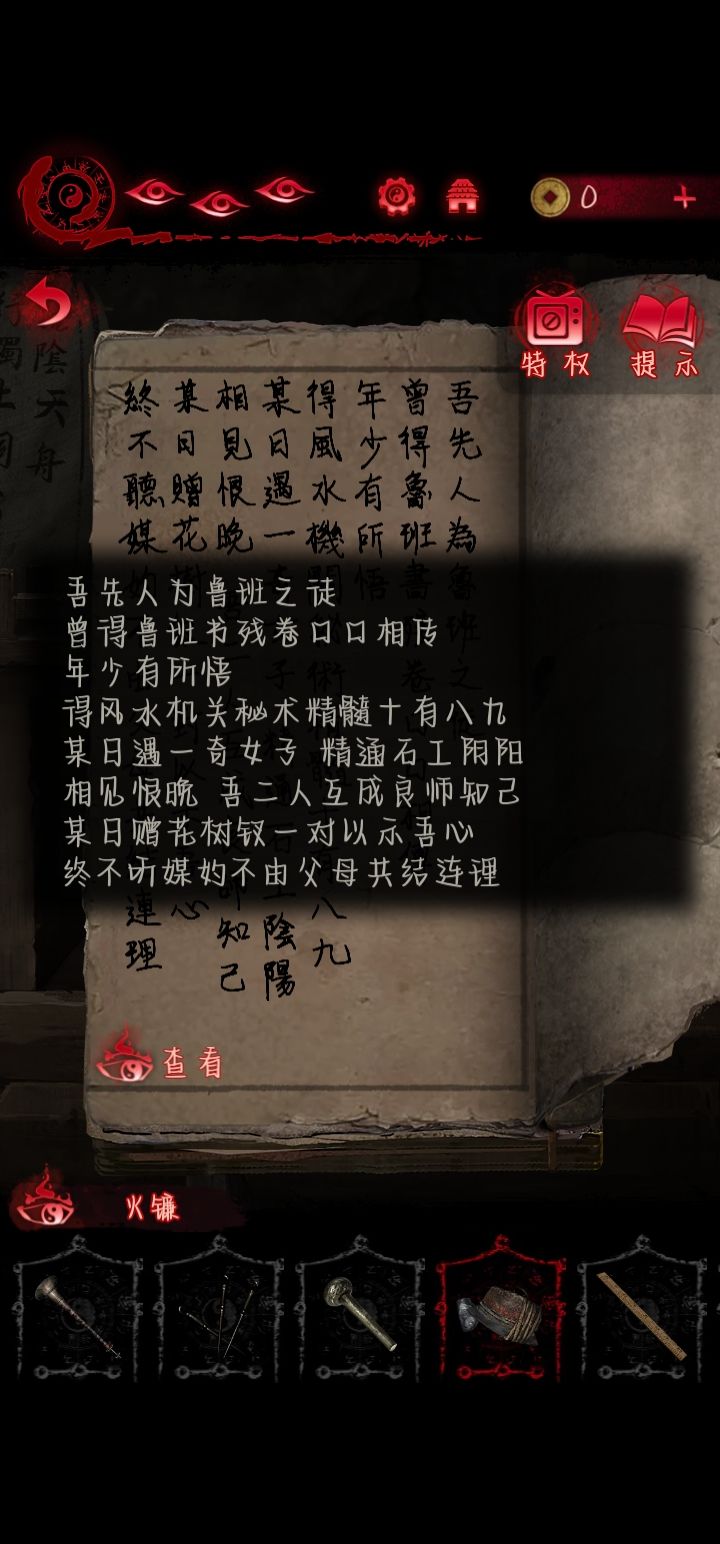 0
特权
提示
吾先人为鲁班之徒
曾得鲁班书残卷口口相传
年少有所悟
得风水机关秘术精髓十有八九
某日遇一奇女子 精通石工阴阳
相见恨晚 吾二人互成良师知己
某日赠花树钗一对以示吾心
终不听媒妁不由父母共结连理
吾先人為魯班之
曾得魯班書
年少有所悟
得風水機
八九
某日遇一
陰陽
相見恨晚
知己
某日贈花
心
終不聽媒
連理
陰天舟
查看
火镰